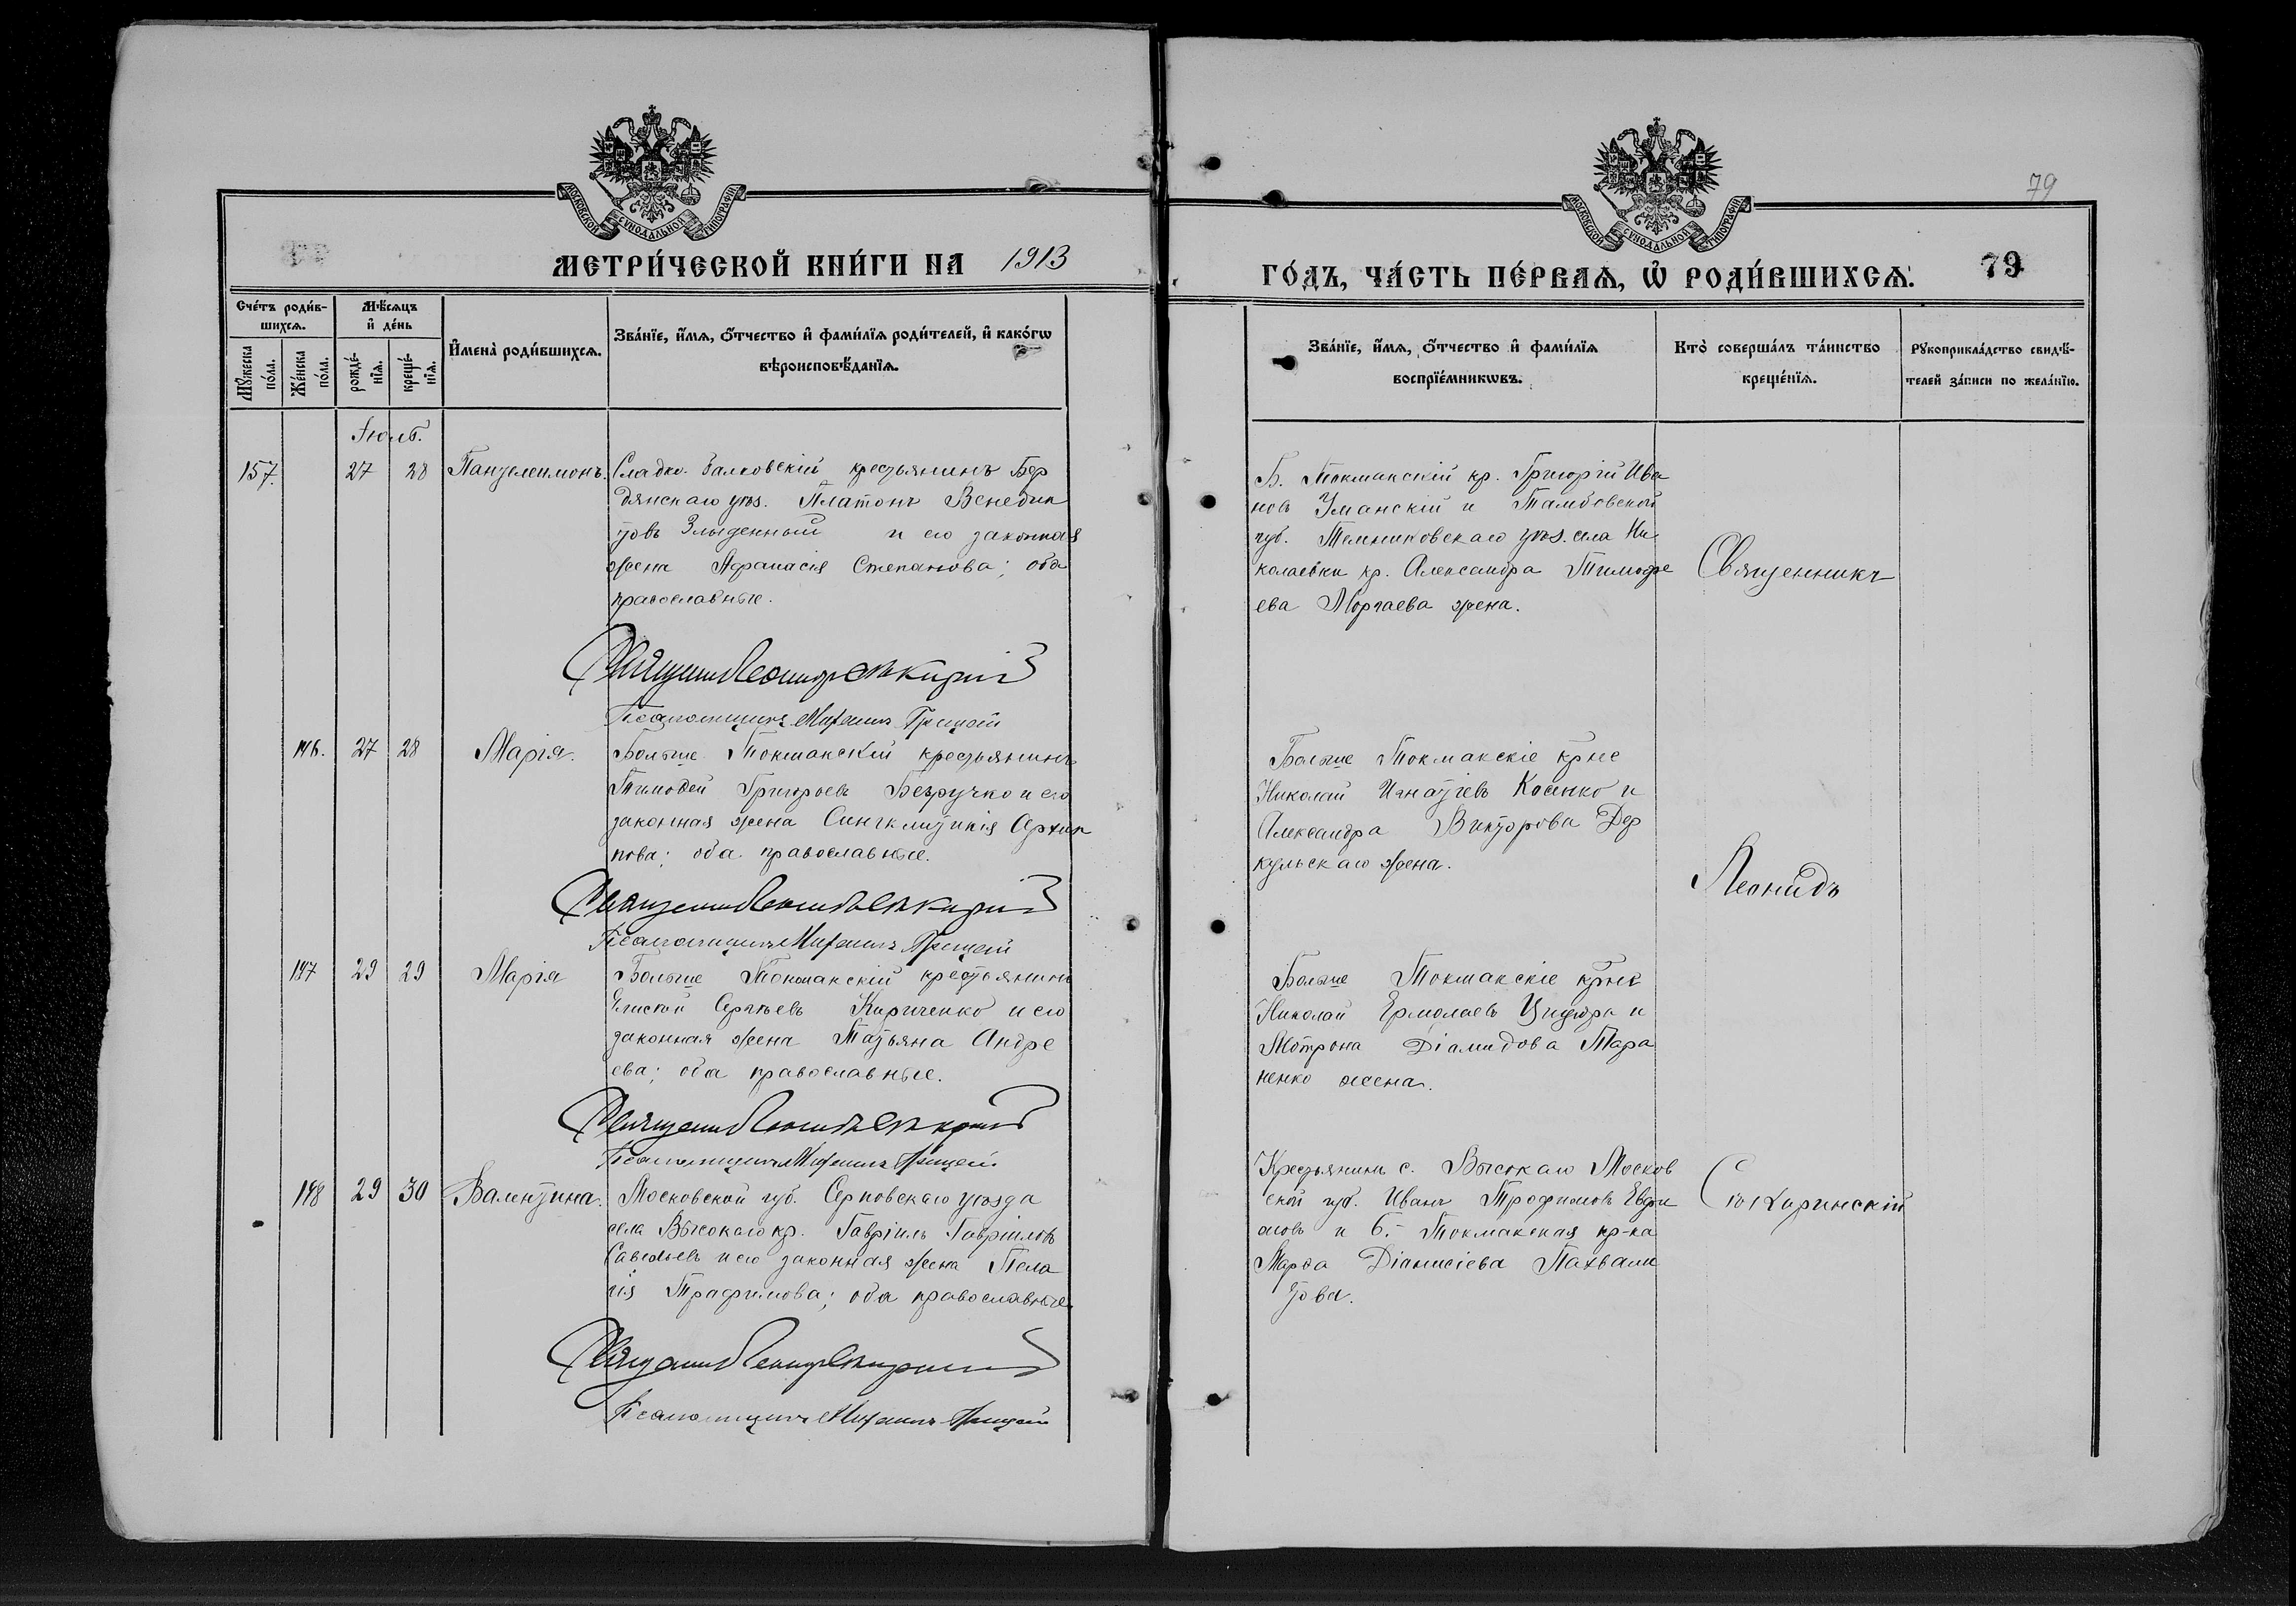 МОСКОВСКОЙ СѴНОДАЛЬНОЙ ТИПОГРАФІИ
МЕТРИ́ЧЕСКОЙ КНИ́ГИ НА 1913
Сче́тъ роди́в-
шихсѧ.
Мѣ́сѧцъ
и҆ де́нь
Мꙋ́жеска
по́ла.
Же́нска
по́ла.
рожде́-
нїѧ.
креще́-
нїѧ.
И҆мена̀ роди́вшихсѧ.
Зва́нїе, и҆́мѧ, ѻ҆́тчество и҆ фами́лїѧ роди́телей, и҆ како́гѡ
вѣроисповѣ́данїѧ.
Іюль.
157. 27 28 Пантелеимонъ. Сладко-Балковскій крестьянинъ Бер
дянскаго уѣз. Платонъ Венедик
товъ Злыденный и его законная
жена Афанасія Степанова; оба
православные.
Священникъ Леонидъ Стокаринскій
Псаломщикъ Михаилъ Грицай
146. 27 28 Марія. Больше Токмакскій крестьянинъ
Тимоѳей Григорьевъ Безручко и его
законная жена Синклитикія Архип
пова; оба православные.
Священникъ Леонидъ Стокаринскій
Псаломщикъ Михаилъ Грицай
147 29 29 Марія Больше Токмакскій крестьянинъ
Сергѣевъ Кириченко и его
законная жена Татьяна Андре
ева; оба православные.
Священникъ Леонидъ Стокаринскій
Псаломщикъ Михаилъ Грицай
148 29 30 Валентина. Московской губ. Серповскаго уѣзда
села Высокаго кр. Гавріилъ Гавріиловъ
Савельевъ и его законная жена Пела
гія Трафимова; оба православные
Священникъ Леонидъ Стокаринскій
Псаломщикъ Михаилъ Грицай
79
МОСКОВСКОЙ СѴНОДАЛЬНОЙ ТИПОГРАФІИ
ГО́ДЪ, ЧА́СТЬ ПЕ́РВАѦ, Ѡ҆ РОДИ́ВШИХСѦ. 79
Зва́нїе, и҆́мѧ, ѻ҆́тчество и҆ фами́лїѧ
воспрїе́мникѡвъ.
Кто̀ соверша́лъ та́инство
креще́нїѧ.
Рꙋкоприкла́дство свидѣ́-
телей за́писи по жела́нїю.
Б. Токмакскій кр. Григорій Ива
новъ Уманскій и Тамбовской
губ. Темниковскаго уѣз. села Ни
колаевки кр. Александра Тимофе
ева Моргаева жена.
Священникъ
Больше Токмакскіе кр̃не
Николай Игнатіевъ Косенко и
Александра Викторова Дер
кульскаго жена.
Леонидъ
Больше Токмакскіе кр̃не
Николай Ермолаевъ и
Мотрона Діамидова Тара
ненко жена.
Крестьянинъ с. Высокаго Москов
ской губ. Иванъ Трофимовъ Евфи
мовъ и Б.- Токмакская кр-ка
Марѳа Діанисіева Пахвали
това.
Стокаринскій